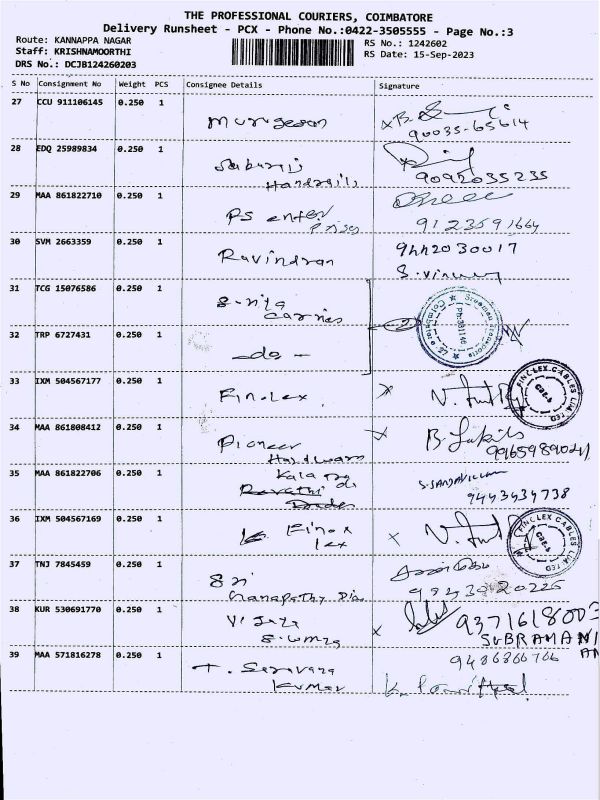 THE PROFESSIONAL COURIERS, COIMBATORE
Delivery Runsheet - PCX - Phone No.:0422-3505555 - Page No.:3
Route: KANNAPPA NAGAR
Staff: KRISHNAMOORTHI
DRS No.: DCJB124260203
RS No.: 1242602
RS Date: 15-Sep-2023
S No Consignment No Weight PCS Consignee Details Signature
27 CCU 911106145 0.250 1 Murugesan
90035-65614
28 EDQ 25989834 0.250 1
9092035235
29 MAA 861822710 0.250 1 PS enter
Prises
9123591664
30 SVM 2663359 0.250 1 Ravindran 9442030017
31 TCG 15076586 0.250 1
32 TRP 6727431 0.250 1 -do-
33 IXM 504567177 0.250 1 Finolex
FINOLEX CABLES LIMITED
CBE-6
34 MAA 861808412 0.250 1 Pioneer
Hardware
35 MAA 861822706 0.250 1 Kala
9443434738
36 IXM 504567169 0.250 1
FINOLEX CABLES LIMITED
CBE-6
37 TNJ 7845459 0.250 1 Sri
Ganapathy
38 KUR 530691770 0.250 1
9371618003
SUBRAMANI
AN
39 MAA 571816278 0.250 1 T. Saravana
Kumar